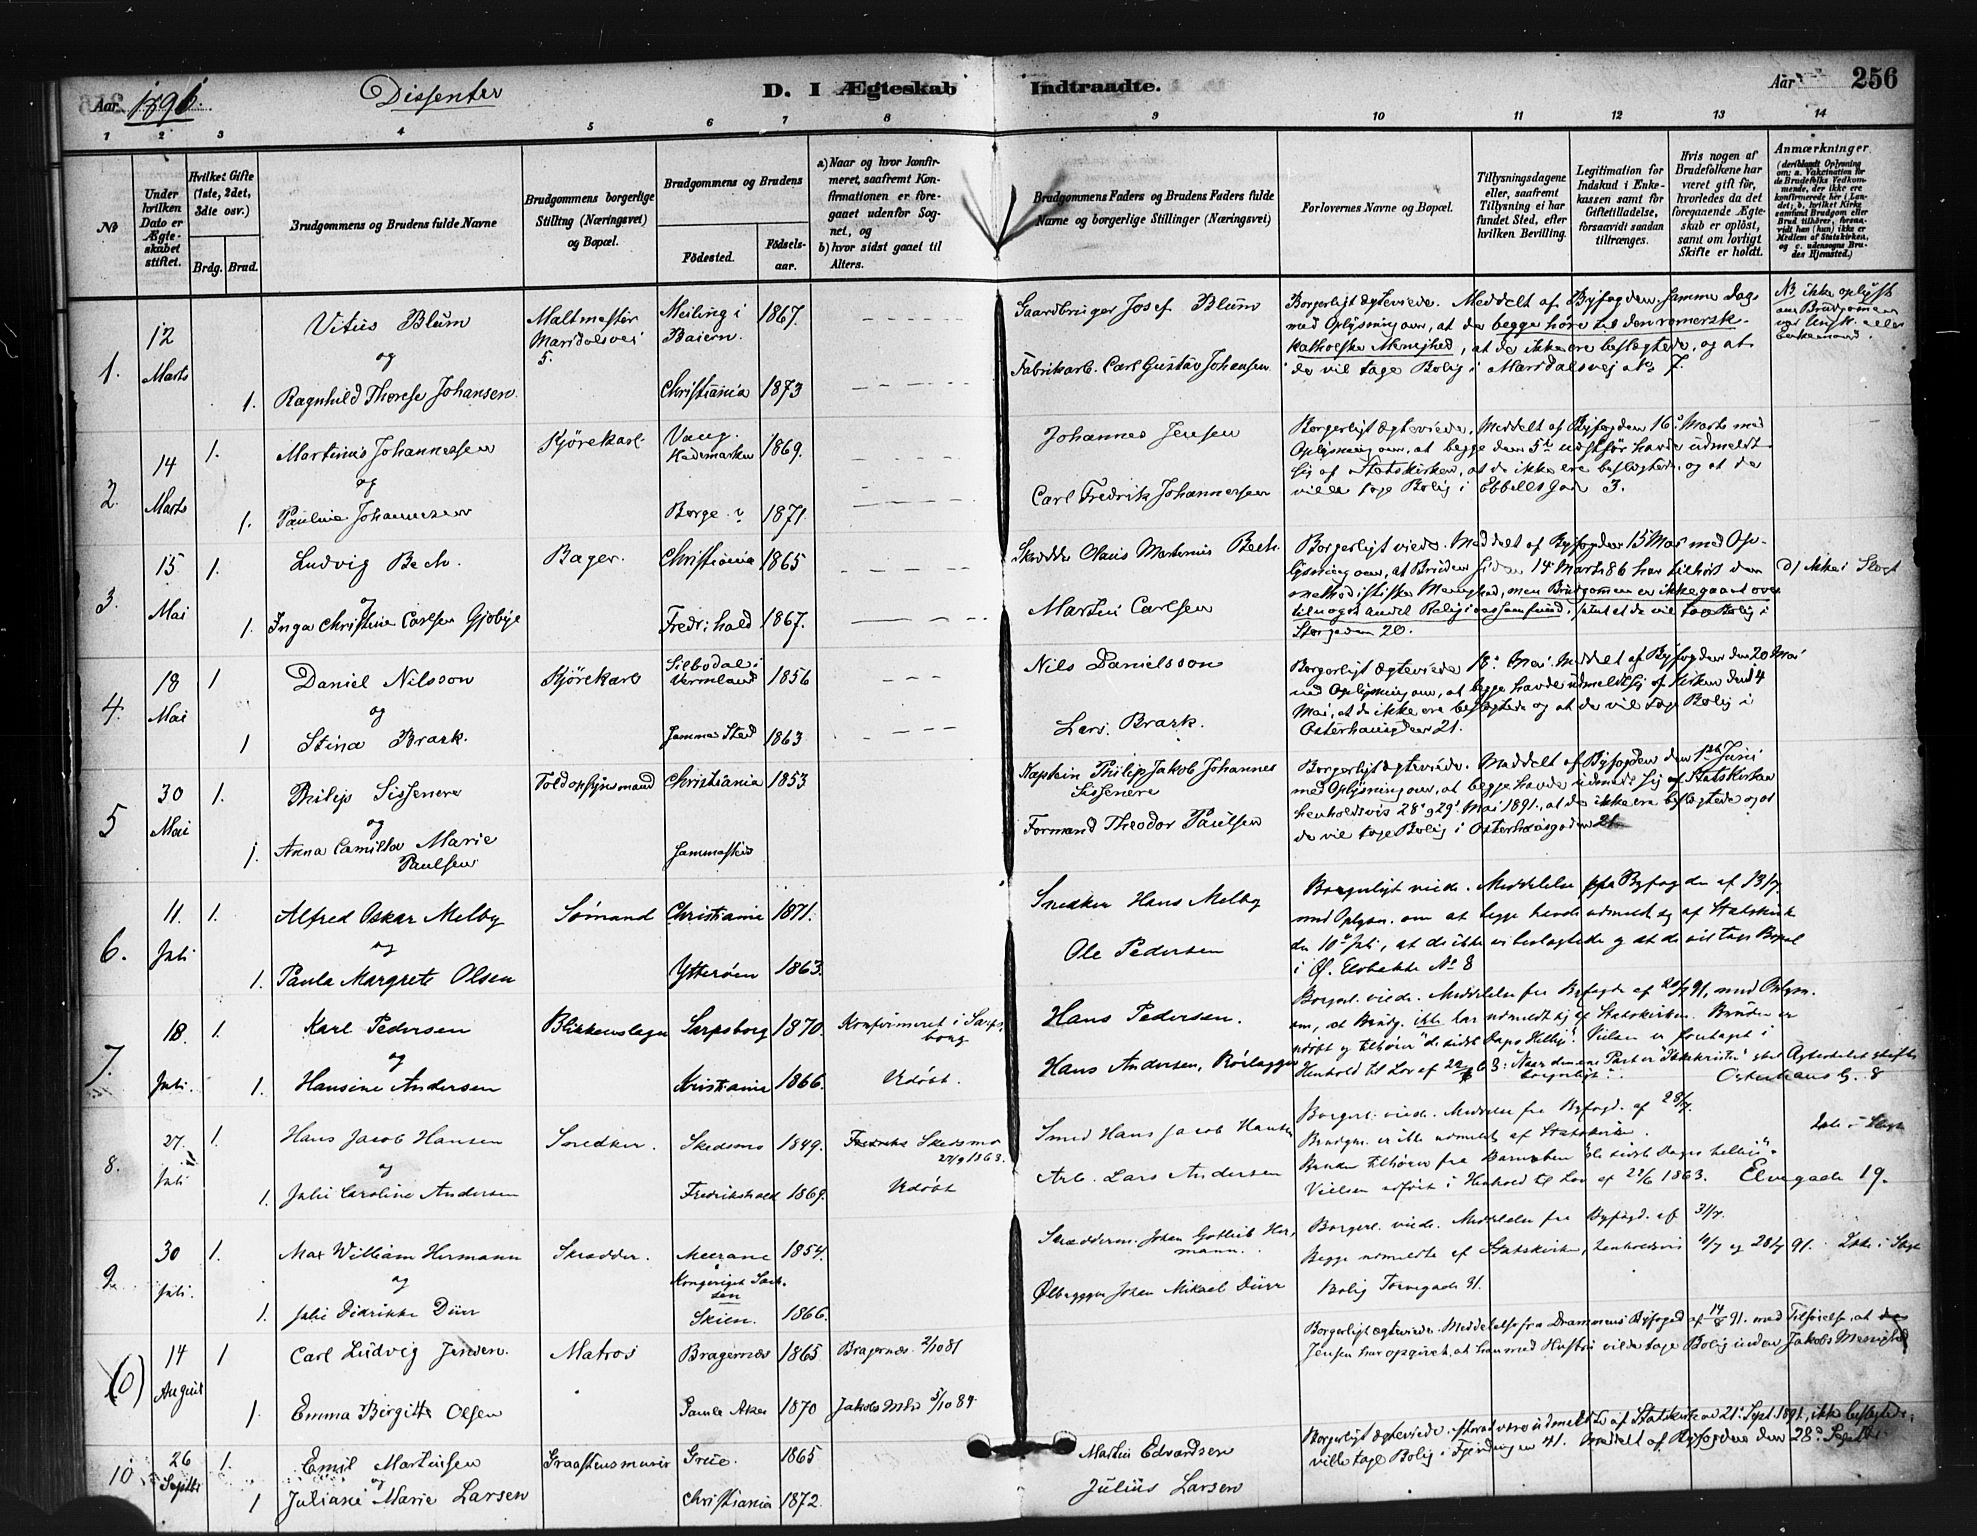 Aar 1891. Dissenter D. I Ægteskab Indtraadte. Aar 256
1 2 3 4 5 6 7 8 9 10 11 12 13 14
No
Under hvilken Dato er Ægteskabet stiftet.
Hvilket Gifte (1ste, 2det, 3die osv.)
Brdg. Brud.
Brudgommens og Brudens fulde Navne
Brudgommens borgerlige Stilling (Næringsvei) og Bopæl.
Brudgommens og Brudens
Fødested.
Fødselsaar.
a) Naar og hvor konfirmeret, saafremt Konfirmationen er foregaaet udenfor Sognet, og
b) hvor sidst gaaet til Alters.
Brudgommens Faders og Brudens Faders fulde Navne og borgerlige Stillinger (Næringsvei)
Forlovernes Navne og Bopæl.
Tillysningsdagene eller, saafremt Tillysning ei har fundet Sted, efter hvilken Bevilling.
Legitimation for Indskud i Enkekassen samt for Giftetilladelse, forsaavidt saadan tiltrænges.
Hvis nogen af Brudefolkene har været gift før, hvorledes da det foregaaende Ægteskab er opløst, samt om lovligt Skifte er holdt.
Anmærkninger
(deriblandt Oplysning om: a. Vaccination for de Brudefolks Vedkommende, der ikke ere konfirmerede her i Landet; b. hvilket Kirkesamfund Brudgom eller Brud tilhører, forsaavidt han (hun) ikke er Medlem af Statskirken, og c. udensogns Brudes Hjemsted.)
1. 12 Marts Vitus Blum Maltmester Maridalsvei 5. Meiling i Baiern. 1867. Gaardbruger Josef Blum
og
1. Ragnhild Therese Johansen Christiania 1873 Fabrikarb. Carl Gustav Johansen
Borgerligt ægteviede. Meddelt af Byfogden samme Dag
med Oplysning om, at de begge høre til den romersk-
katholske Menighed, at de ikke ere beslægtede, og at
de vil tage Bolig i Maridalsvej No 7.
NB ikke oplyst om Brudgommen var Ungk. eller Enkemand.
2. 14 Marts 1. Martinus Johannessen Kjørekarl Vang. Hedemarken 1869. Johannes Jensen
og
1. Pauline Johannessen Borge 1871 Carl Fredrik Johannessen
Borgerligt ægteviede. Meddelt af Byfogden 16. Marts med
Oplysning om, at begge den 5te havde udmeldt
sig af Statskirken, at de ikke ere beslægtede, og at de
vilde tage Bolig i Ebbells Gade 3.
3. 15 Mai 1. Ludvig Bech. Bager. Christiania 1865 Skrædder Olaus Martinius Bech.
og
1. Inga Christine Carlsen Gjøbye Fredr:hald 1867. Martin Carlsen
Borgerligt viede. Meddelt af Byfogden 15 Mai med Op-
lysning om, at Bruden siden 14 Marts 86 har tilhørt den
methodistiske Menighed, men Brudgommen er ikke gaaet over
til noget andet Religionssamfund, samt at de vil tage Bolig i
Storgaden 20.
d) ikke i Slægt
4. 18 Mai 1 Daniel Nilsson Kjørekarl Silbodal i Vermland 1856 Nils Danielsson
og
1 Stina Brask. samme Sted 1863 Lars Brask.
Borgerligt ægteviede 18. Mai. Meddelt af Byfogden den 20 Mai
med Oplysning om, at begge havde udmeldt sig af Kirken den 14
Mai, at de ikke ere beslægtede og at de vil tage Bolig i
Osterhausgaden 21.
5 30 Mai 1. Philip Sissenere Toldopsynsmand Christiania 1853 Kaptein Philip Jakob Johannes Sissenere
og
1. Anna Camilla Marie Paulsen sammesteds Formand Theodor Paulsen
Borgerligt ægteviede. Meddelt af Byfogden den 1ste Juni
med Oplysning om, at begge havde udmeldt sig af Statskirken
henholdsvis 28. og 29. Mai 1891, at de ikke ere beslægtede og at
de vil tage Bolig i Osterhausgaden 21
6. 11. Juli 1. Alfred Oskar Melby Sømand Christiania 1871. Snedker Hans Melby
og
1. Paula Margrete Olsen Ytterøen 1863. Ole Pedersen
Borgerligt viede. Meddelelse fra Byfogden af 13/7
med Oplysn. om at begge havde udmeldt sig af Statskirken
den 10de Juli, at de ikke er beslægtede og at de vil tage Bopæl
i No 8
7. 18. Juli. 1. Karl Pedersen Blikkenslager Sarpsborg 1870. Konfirmeret i Sarpsborg Hans Pedersen.
og
1. Hansine Andersen Kristiania 1866. Udøbt. Hans Andersen, Rørlægger
Borgerl. viede. Meddelelse fra Byfogden af 20/7 91, med Oplysn.
om, at Brudg. ikke har udmeldt sig af Statskirken. Bruden er
udøbt og tilhører "de sidste Dages Hellige". Vielsen er foretaget i
Henhold til Lov af 22/6 63: "Naar den ene Part er Ikkekristen" skal Ægteskabet stiftes borgerligt". Osterhaus G. 8
8. 27. Juli 1. Hans Jacob Hansen Snedker. Skedsmo 1849. Skedsmo 27/9 1863. Smed Hans Jacob Hansen
og
1. Julie Caroline Andersen Fredrikshald 1869. Udøbt Arb. Lars Andersen
Borgerl. viede. Meddelelse fra Byfogd. af 28/7.
Brudgm. er ikke udmeldt af Statskirken.
Bruden tilhører fra Barnsben "de sidste Dages hellige".
Vielsen udført i Henhold til Lov af 22/6 1863. Elvegade 19.
Ikke i Slægt
9. 30 Juli. 1. Max William Hermann Skrædder. Meerane Kongeriget Sachsen 1854. Skræddermr. Johan Gotlieb Hermann.
og
1. Julie Didrikke Dürr Skien. 1866. Ølbrygger Johan Mikael Dürr
Borgerl. viede. Meddelelse fra Byfogd. af 31/7.
Begge udmeldte af Statskirken, henholdsvis 4/7 og 28/7 91. Ikke i Slægt
Bolig Torvegade 31.
(6) 14 August 1 Carl Ludvig Jensen. Matros Bragernæs 1865 Bragernæs 2/10 81
1. Emma Birgitte Olsen Gamle Aker 1870 Jakobs Mhd 5/10 84.
Borgerligt ægteviede. Meddelelse fra Drammens Byfoged af 14/8 91. med Tilføielse, at
Jensen har opgivet, at han med Hustru vilde tage Bolig inden Jakobs Menighed
10 26 Septbr 1. Emil Martinsen Graastensmurer Grue. 1865 Martin Edvardsen
og
1 Juliane Marie Larsen Christiania 1872. Julius Larsen
Borgerligt ægteviede efter at være udmeldt af Statskirken 21. Sept. 1891, ikke beslægtede,
ville tage Bolig i Fjerdingen 41. Meddelt af Byfogden den 28. Septbr.